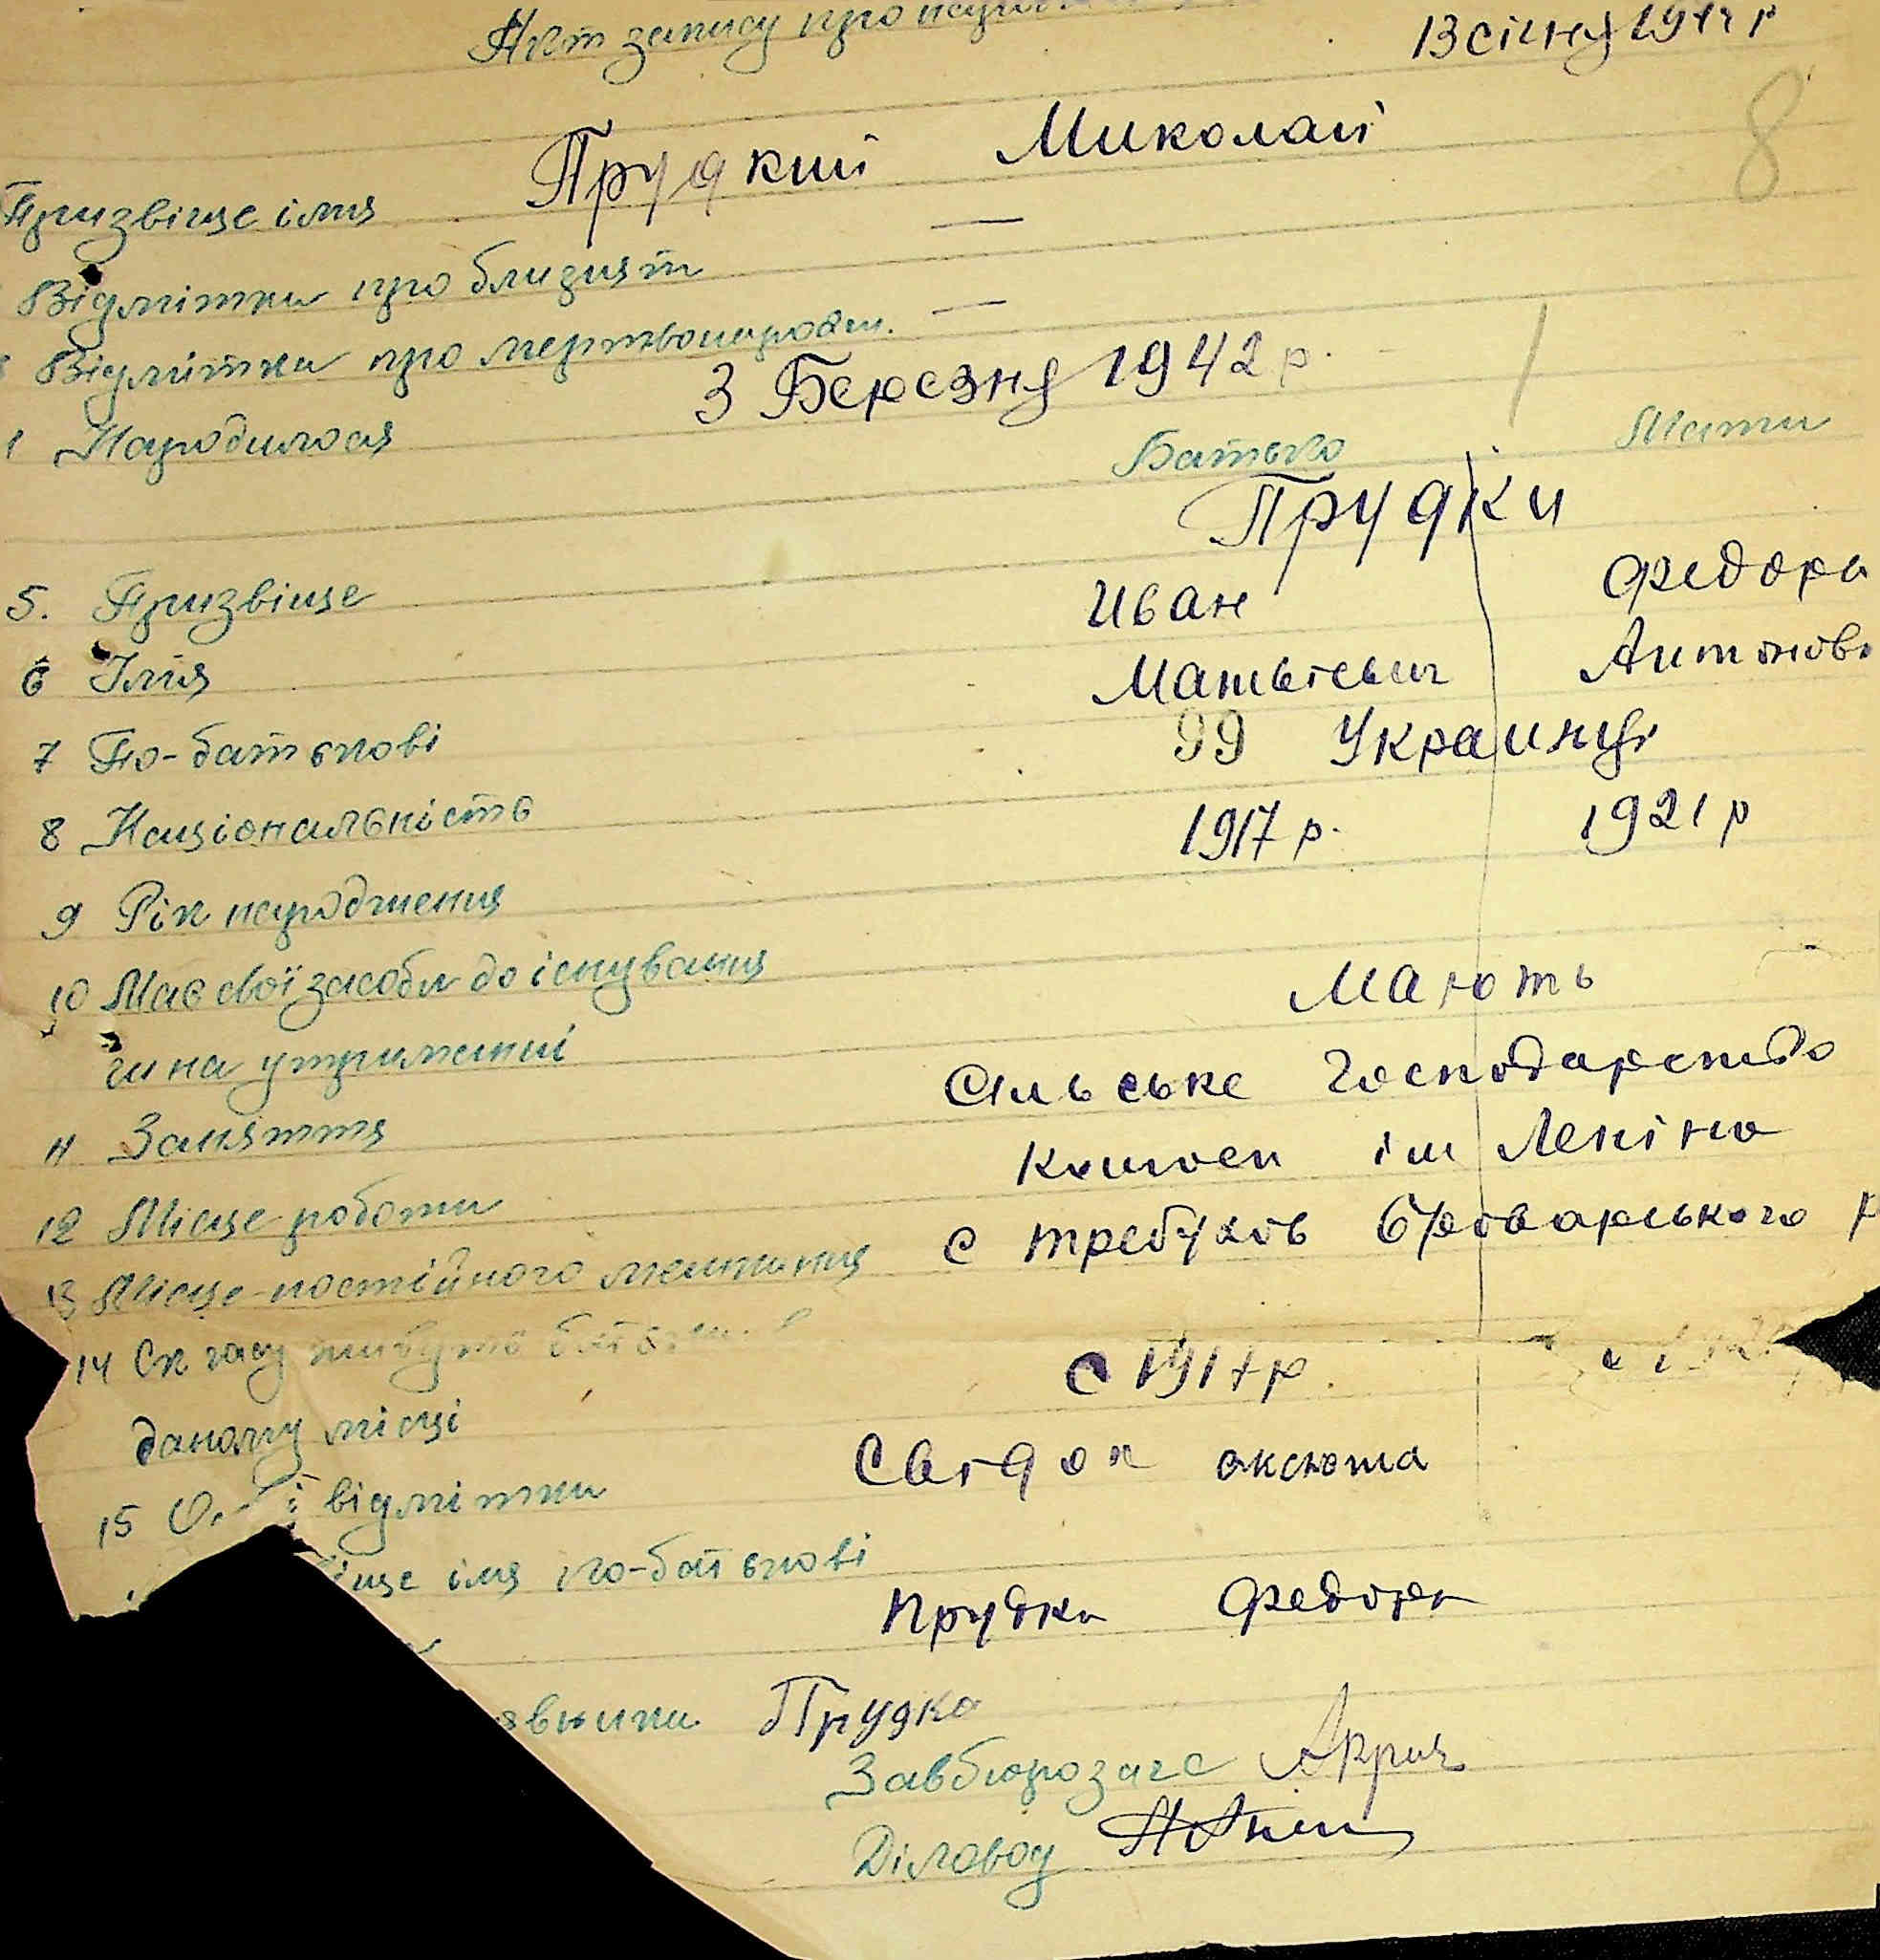 Акт запису про
13 січня
8
Призвіще імя Прудкий Миколай
Відмітки про близнят —
Відмітки про мертвонародж. —
Народилося 3 Березня 1942 р.
Батько Мати
5. Призвіще Прудки
6 Імя Иван Федора
7 По-батькові Матвієвич Антонов
8 Національність 99 Украинці
9 Рік народження 1917 р. 1921 р
10 Має свої засоби до існування
чи на утриманні Мають
11 Заняття Сільське Господарство
12 Місце роботи ім Леніна
13 Місце постійного с Требухов Броварського р
14 Ск часу живуть
даному місці с 1917 р.
15 відмітки Свідок аксюта
імя по-батькові
Прудка Федора
Прудка
Завбюрозагс
Діловод